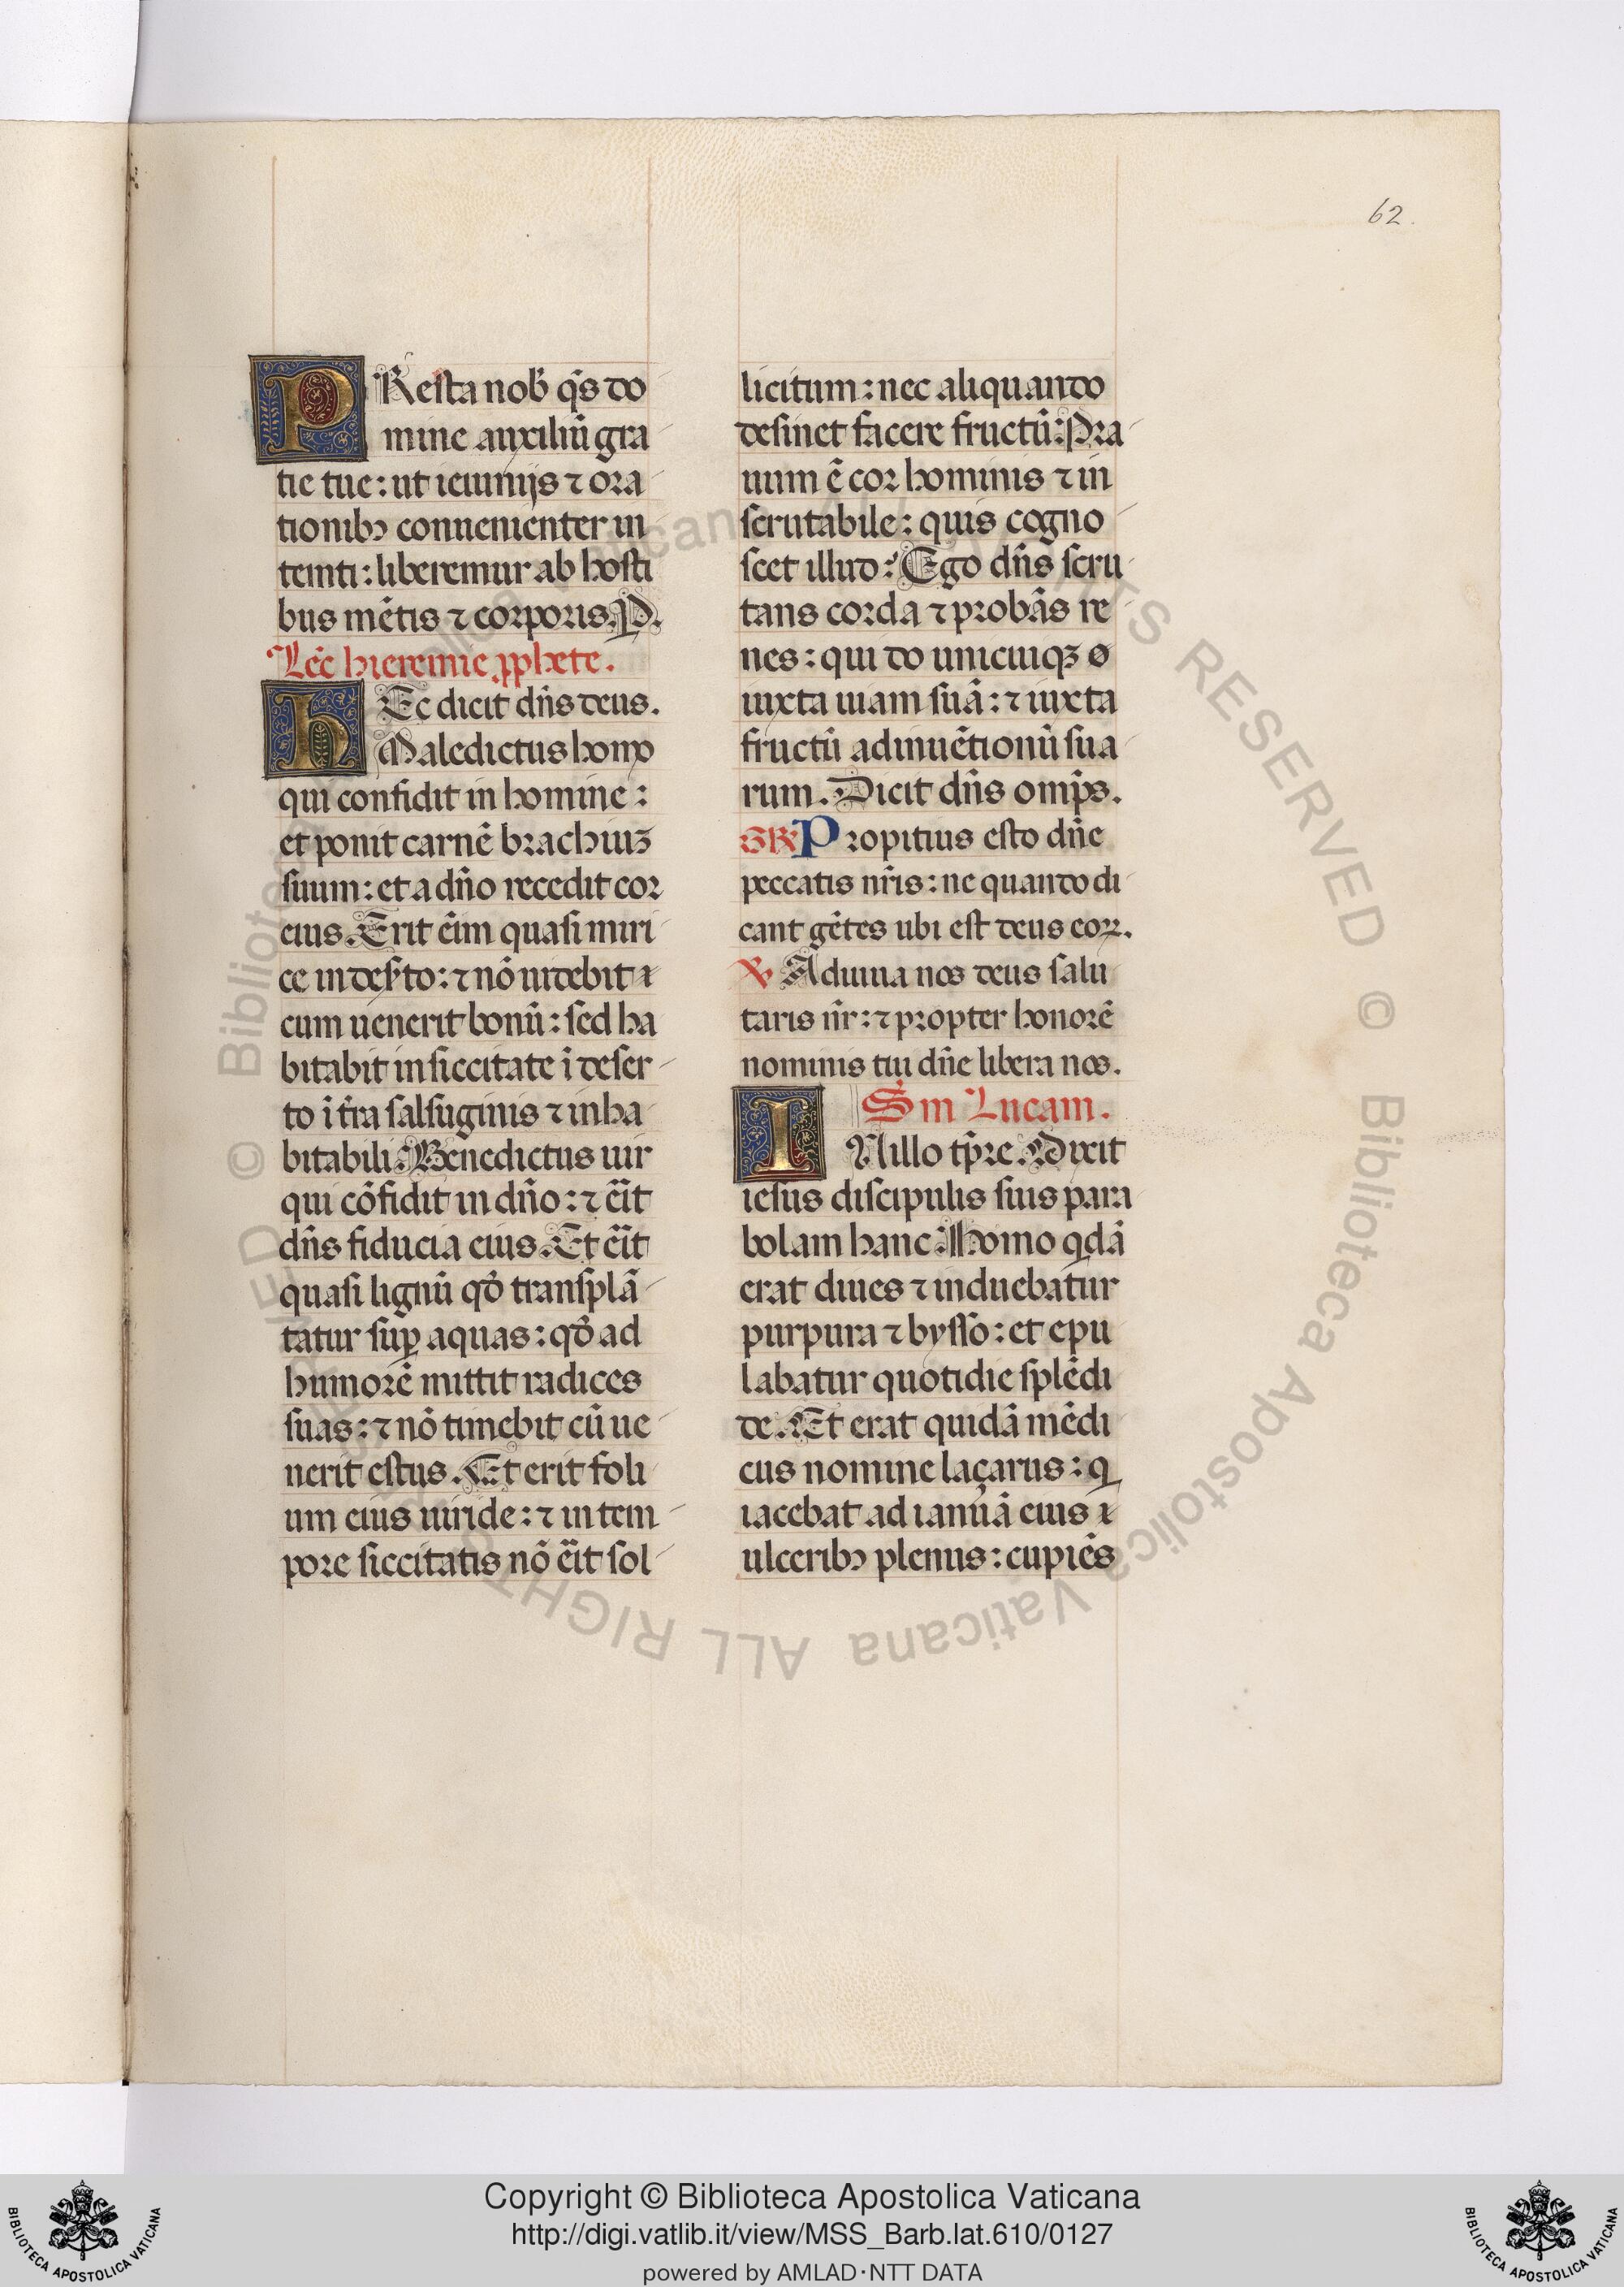 62.
PResta nob̃ q̃s do
mine auxiliũ gra
tie tue: ut ieiunijs ⁊ ora
tionibꝫ conuenienter in
tenti: liberemur ab hosti
bus mẽtis ⁊ corporis. P.
Lec̃ hieremie ꝓphete.
hEc dicit dñs deus.
Maledictus homo
qui confidit in homine:
et ponit carnẽ brachiuꝫ
suum: et a dño recedit cor
eius. Erit eĩm quasi miri
ce in deẜto: ⁊ nõ uidebit
cum uenerit bonũ: sed ha
bitabit in siccitate ĩ deser
to ĩ tr̃a salsuginis ⁊ inha
bitabili. Benedictus uir
qui cõfidit in dño: ⁊ er̃it
dñs fiducia eius. Et er̃it
quasi lignũ qđ transplã
tatur suꝑ aquas: qđ ad
humorẽ mittit radices
suas: ⁊ nõ timebit cũ ue
nerit estus. Et erit foli
um eius uiride: ⁊ in tem
pore siccitatis nõ er̃it sol
licitum: nec aliquando
desinet facere fructũ: Pra
uum ẽ cor hominis ⁊ in
scrutabile: quis cogno
scet illud: Ego dñs scru
tans corda ⁊ probãs re
nes: qui do unicuiqꝫ
iuxta uiam suã: ⁊ iuxta
fructũ adinuẽtionũ sua
rum. Dicit dñs omp̃s.
GR Propitius esto dñe
peccatis nr̃is: ne quando di
cant gẽtes ubi est deus eoꝝ.
℣ Adiuua nos deus salu
taris nr̃: ⁊ propter honorẽ
nominis tui dñe libera nos.
Sm Lucam.
INillo tp̃re. Dixit
iesus discipulis suis para
bolam hanc: Homo qdã
erat diues ⁊ induebatur
purpura ⁊ bysso: et epu
labatur quotidie splẽdi
de. Et erat quidã mẽdi
cus nomine laçarus: q
iacebat ad ianuã eius
ulceribꝫ plenus: cupiẽs
© Biblioteca Apostolica Vaticana ALL RIGHTS RESERVED
© Biblioteca Apostolica Vaticana ALL RIGHTS RESERVED
BIBLIOTECA APOSTOLICA VATICANA
Copyright © Biblioteca Apostolica Vaticana
http://digi.vatlib.it/view/MSS_Barb.lat.610/0127
powered by AMLAD·NTT DATA
BIBLIOTECA APOSTOLICA VATICANA